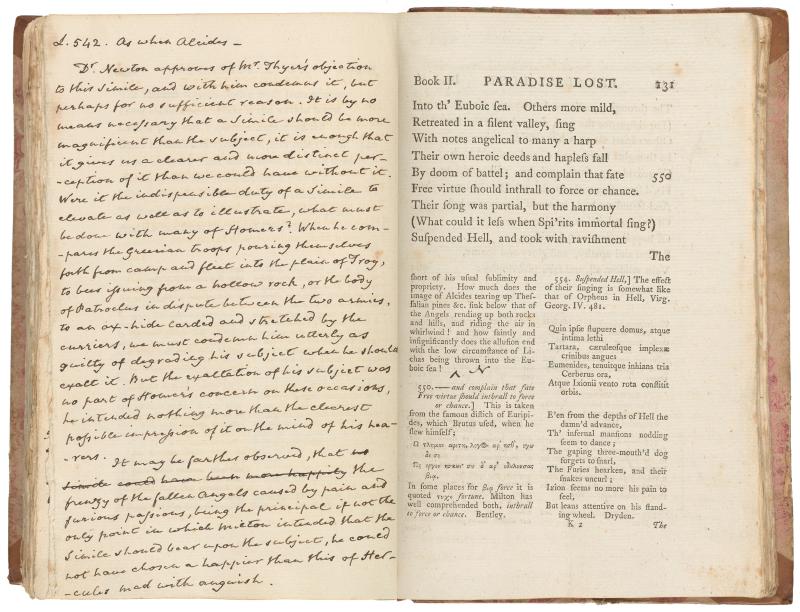 L. 542. As when Alcides —
Dr. Newton approves of Mr. Thyer's objection
to this Simile, and with him condemns it, but
perhaps for no sufficient reason. It is by no
means necessary that a Simile should be more
magnificent than the subject, it is enough that
it gives us a clearer and more distinct per-
-ception of it than we could have without it.
Were it the indispensible duty of a Simile to
elevate as well as to illustrate, what must
be done with many of Homers? When he com-
-pares the Græcian troops pouring themselves
forth from camp and fleet into the plain of Troy,
to bees issuing from a hollow rock, or the body
of Patroclus in dispute between the two armies,
to an ox-hide larded and stretched by the
curriers, we must condemn him utterly as
guilty of degrading his subject when he should
exalt it. But the exaltation of his subject was
no part of Homers concern on these occasions,
he intended nothing more than the clearest
possible impression of it on the mind of his hea-
-rers.
It may be farther observed, that no
Simile could have been more happily the
frenzy of the fallen Angels caused by pain and
furious passions, being the principal if not the
only point in which Milton intended that the
Simile should bear upon the subject, he could
not have chosen a happier than this of Her-
-cules mad with anguish.
Book II. PARADISE LOST. 131
Into th' Euboic ſea. Others more mild,
Retreated in a ſilent valley, ſing
With notes angelical to many a harp
Their own heroic deeds and hapleſs fall
By doom of battel; and complain that fate 550
Free virtue ſhould inthrall to force or chance.
Their ſong was partial, but the harmony
(What could it leſs when Spi'rits immortal ſing?)
Suſpended Hell, and took with raviſhment
The
ſhort of his uſual ſublimity and
propriety. How much does the
image of Alcides tearing up Theſ-
ſalian pines &c. ſink below that of
the Angels rending up both rocks
and hills, and riding the air in
whirlwind! and how faintly and
inſignificantly does the alluſion end
with the low circumſtance of Li-
chas being thrown into the Eu-
boic ſea!
N
550.—and complain that fate
Free virtue ſhould inthrall to force
or chance.] This is taken
from the famous diſtich of Euripi-
des, which Brutus uſed, when he
ſlew himſelf;
In ſome places for βια force it is
quoted τυχη fortune. Milton has
well comprehended both, inthrall
to force or chance. Bentley.
554. Suſpended Hell,] The effect
of their ſinging is ſomewhat like
that of Orpheus in Hell, Virg.
Georg. IV. 481.
Quin ipſæ ſtupuere domus, atque
intima lethi
Tartara, cæruleoſque implexæ
crinibus angues
Eumenides, tenuitque inhians tria
Cerberus ora,
Atque Ixionii vento rota conſtitit
orbis.
E'en from the depths of Hell the
damn'd advance,
Th' infernal manſions nodding
ſeem to dance;
The gaping three-mouth'd dog
forgets to ſnarl,
The Furies hearken, and their
ſnakes uncurl;
Ixion ſeems no more his pain to
feel,
But leans attentive on his ſtand-
ing wheel. Dryden.
K 2 The